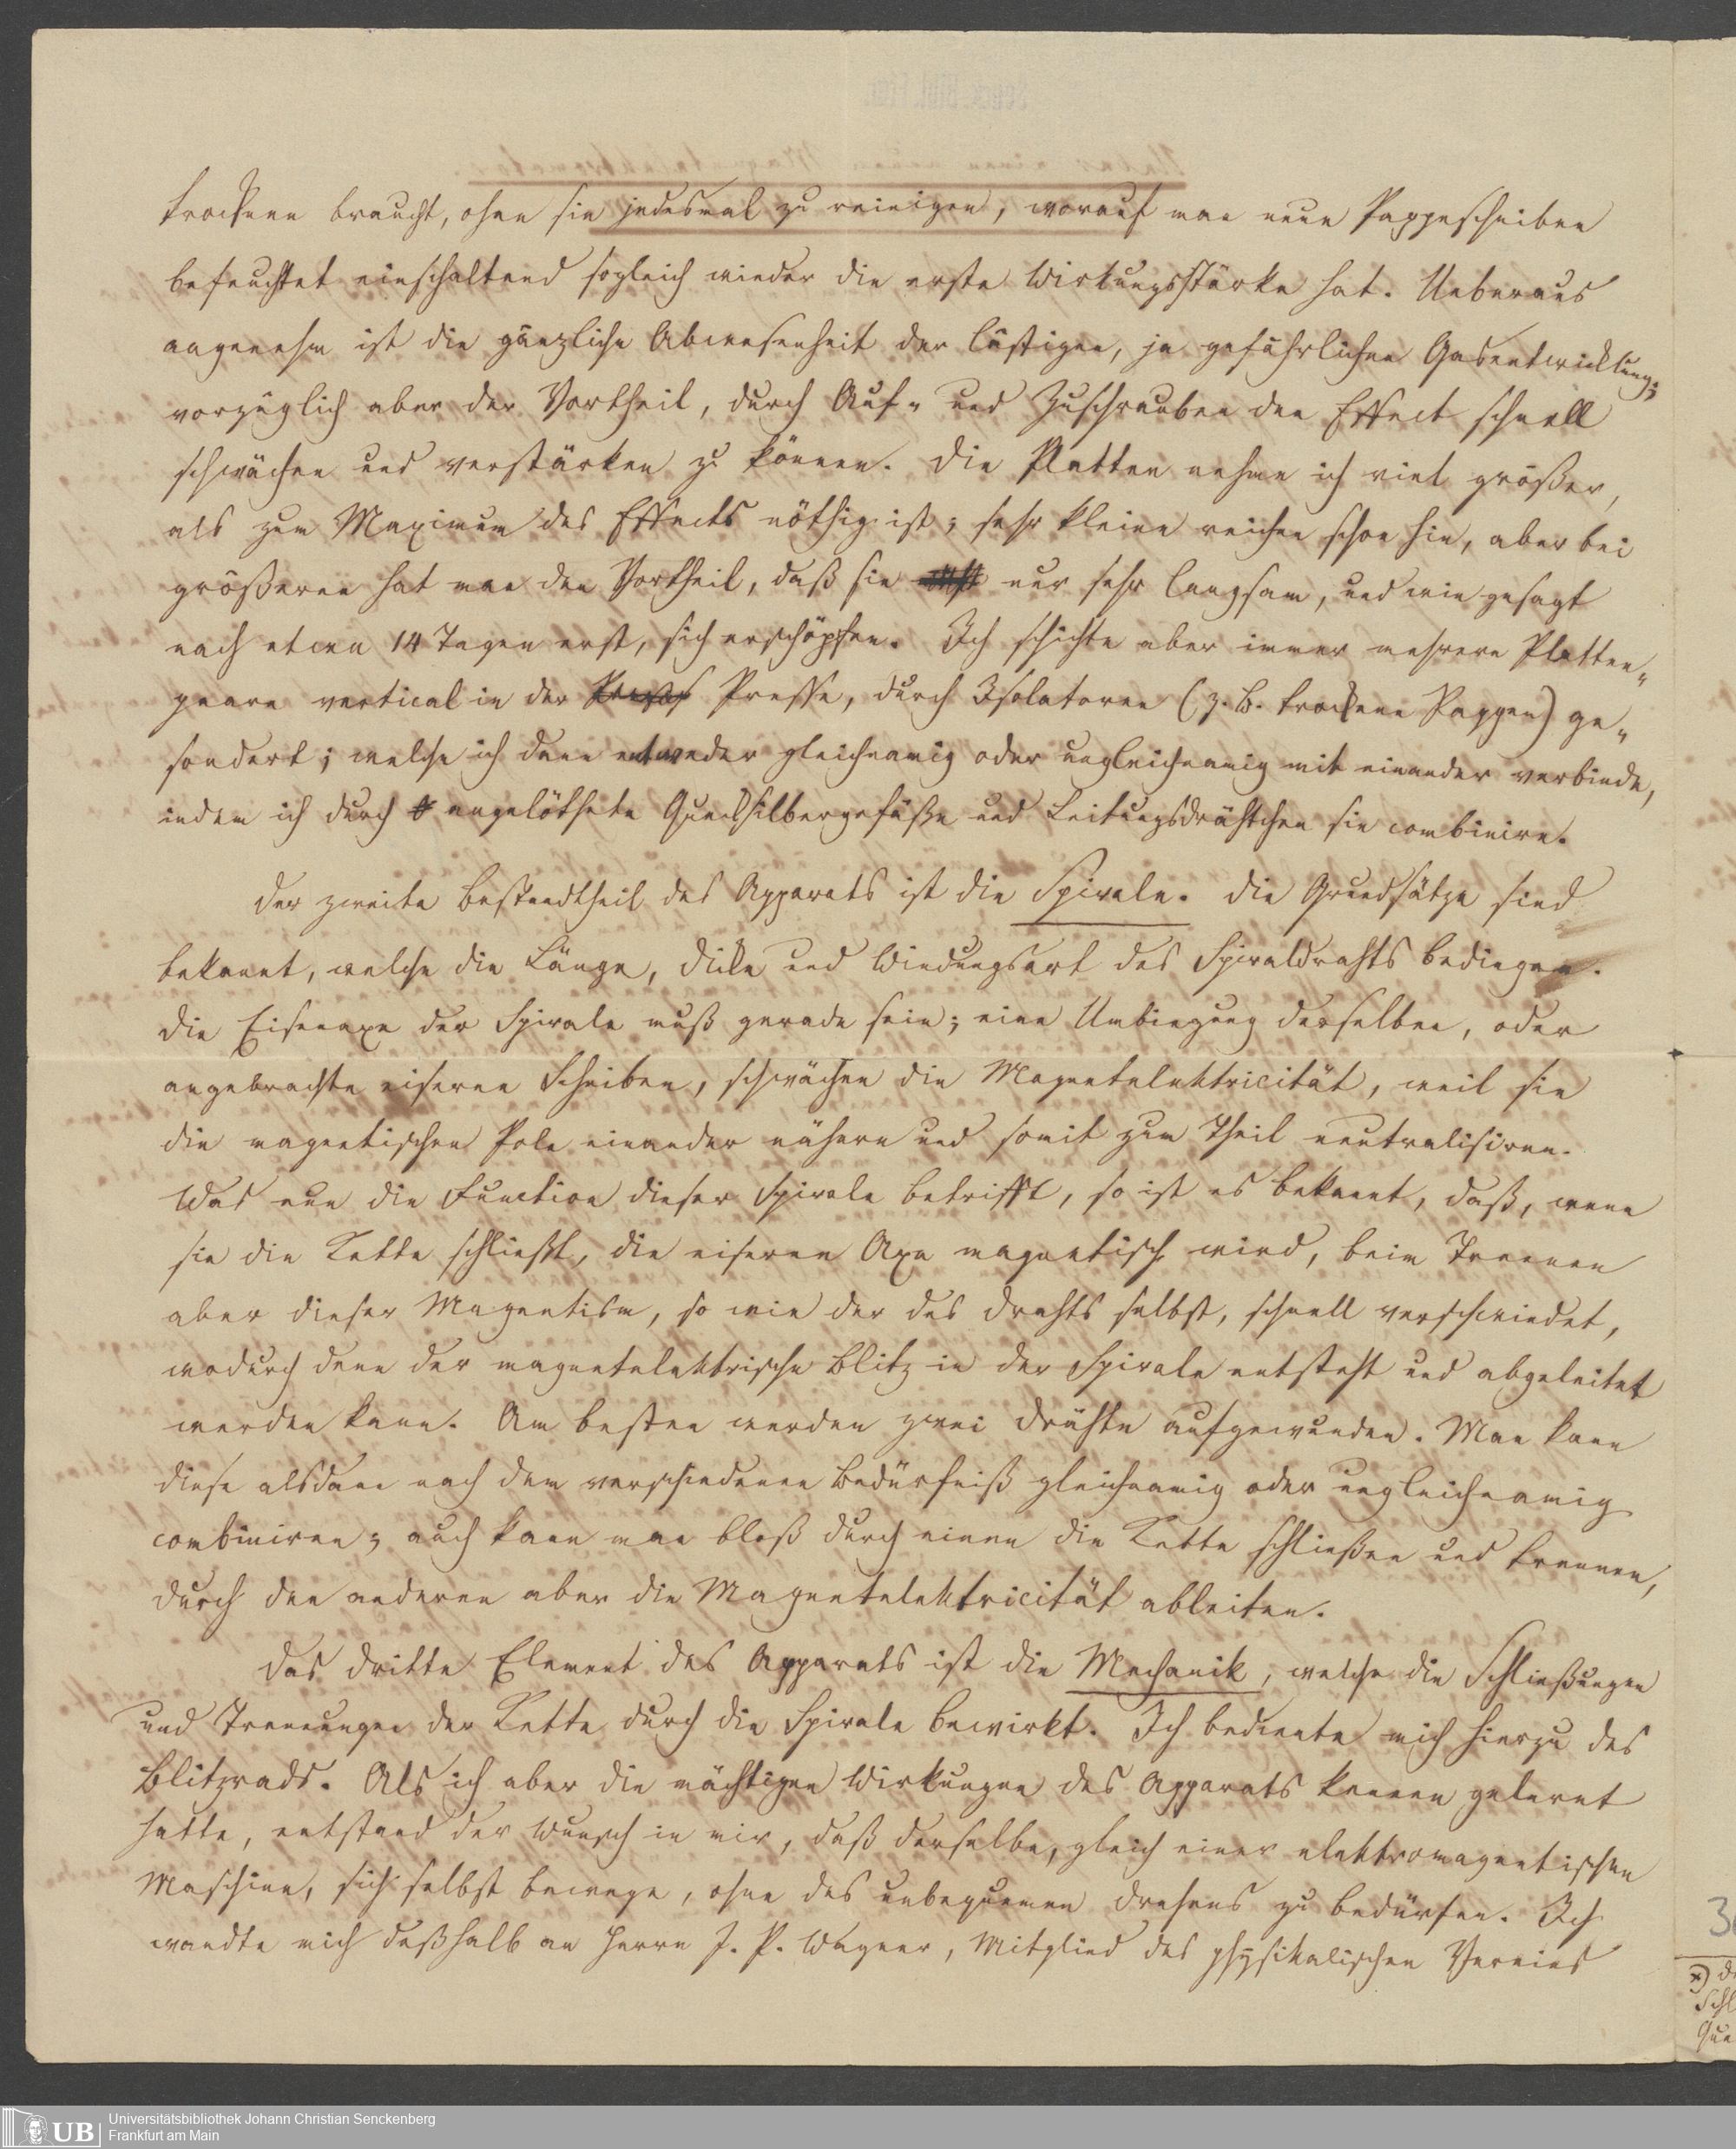 trocknen braucht, ohne sie jedesmal zu reinigen, worauf man neue Pappescheiben
befeuchtet einschaltend sogleich wieder die erste Wirkungsstärke hat. Ueberaus
angenehm ist die gänzliche Abwesenheit der lästigen, ja gefährlichen Gasentwicklung;
vorzüglich aber der Vortheil, durch Auf- und Zuschrauben den Effect schnell
schwächen und verstärken zu können. Die Platten nehme ich viel größer,
als zum Maximum des Effects nöthig ist; sehr kleine reichen schon hin, aber bei
größeren hat man den Vortheil, daß sie nur sehr langsam, und wie gesagt
nach etwa 14 Tagen erst, sich erschöpfen. Ich schichte aber immer mehrere Platten-
paare vertical in der Presse, durch Isolatoren (z. B. trockene Pappen) ge-
sondert; welche ich dann entweder gleichnamig oder ungleichnamig mit einander verbinde,
indem ich durch angelöthete Quecksilbergefäße und Leitungsdrähtchen sie combinire.
Der zweite Bestandtheil des Apparats ist die Spirale. Die Grundsätze sind
bekannt, welche die Länge, Dicke und Windungsart des Spiraldrahts bedingen.
Die Eisenaxe der Spirale muß gerade sein; eine Umbiegung derselben, oder
angebrachte eiserne Scheiben, schwächen die Magnetelektricität, weil sie
die magnetischen Pole einander nähern und somit zum Theil neutralisiren.
Was nun die Function dieser Spirale betrifft, so ist es bekannt, daß, wenn
sie die Kette schließt, die eiserne Axe magnetisch wird, beim Trennen
aber dieser Magnetism, so wie der des Drahts selbst, schnell verschwindet,
wodurch denn der magnetelektrische Blitz in der Spirale entsteht und abgeleitet
werden kann. Am besten werden zwei Drähte aufgewunden. Man kann
diese alsdann nach dem verschiedenen Bedürfniß gleichnamig oder ungleichnamig
combiniren; auch kann man bloß durch einen die Kette schließen und trennen,
durch den anderen aber die Magnetelektricität ableiten.
Das dritte Element des Apparats ist die Mechanik, welche die Schließungen
und Trennungen der Kette durch die Spirale bewirkt. Ich bediente mich hierzu des
Blitzrads. Als ich aber die mächtigen Wirkungen des Apparats kennen gelernt
hatte, entstand der Wunsch in mir, daß derselbe, gleich einer elektromagnetischen
Maschine, sich selbst bewege, ohne des unbequemen Drehens zu bedürfen. Ich
wandte mich deßhalb an Herrn J. P. Wagner, Mitglied des physikalischen Vereins
UB
Universitätsbibliothek Johann Christian Senckenberg
Frankfurt am Main